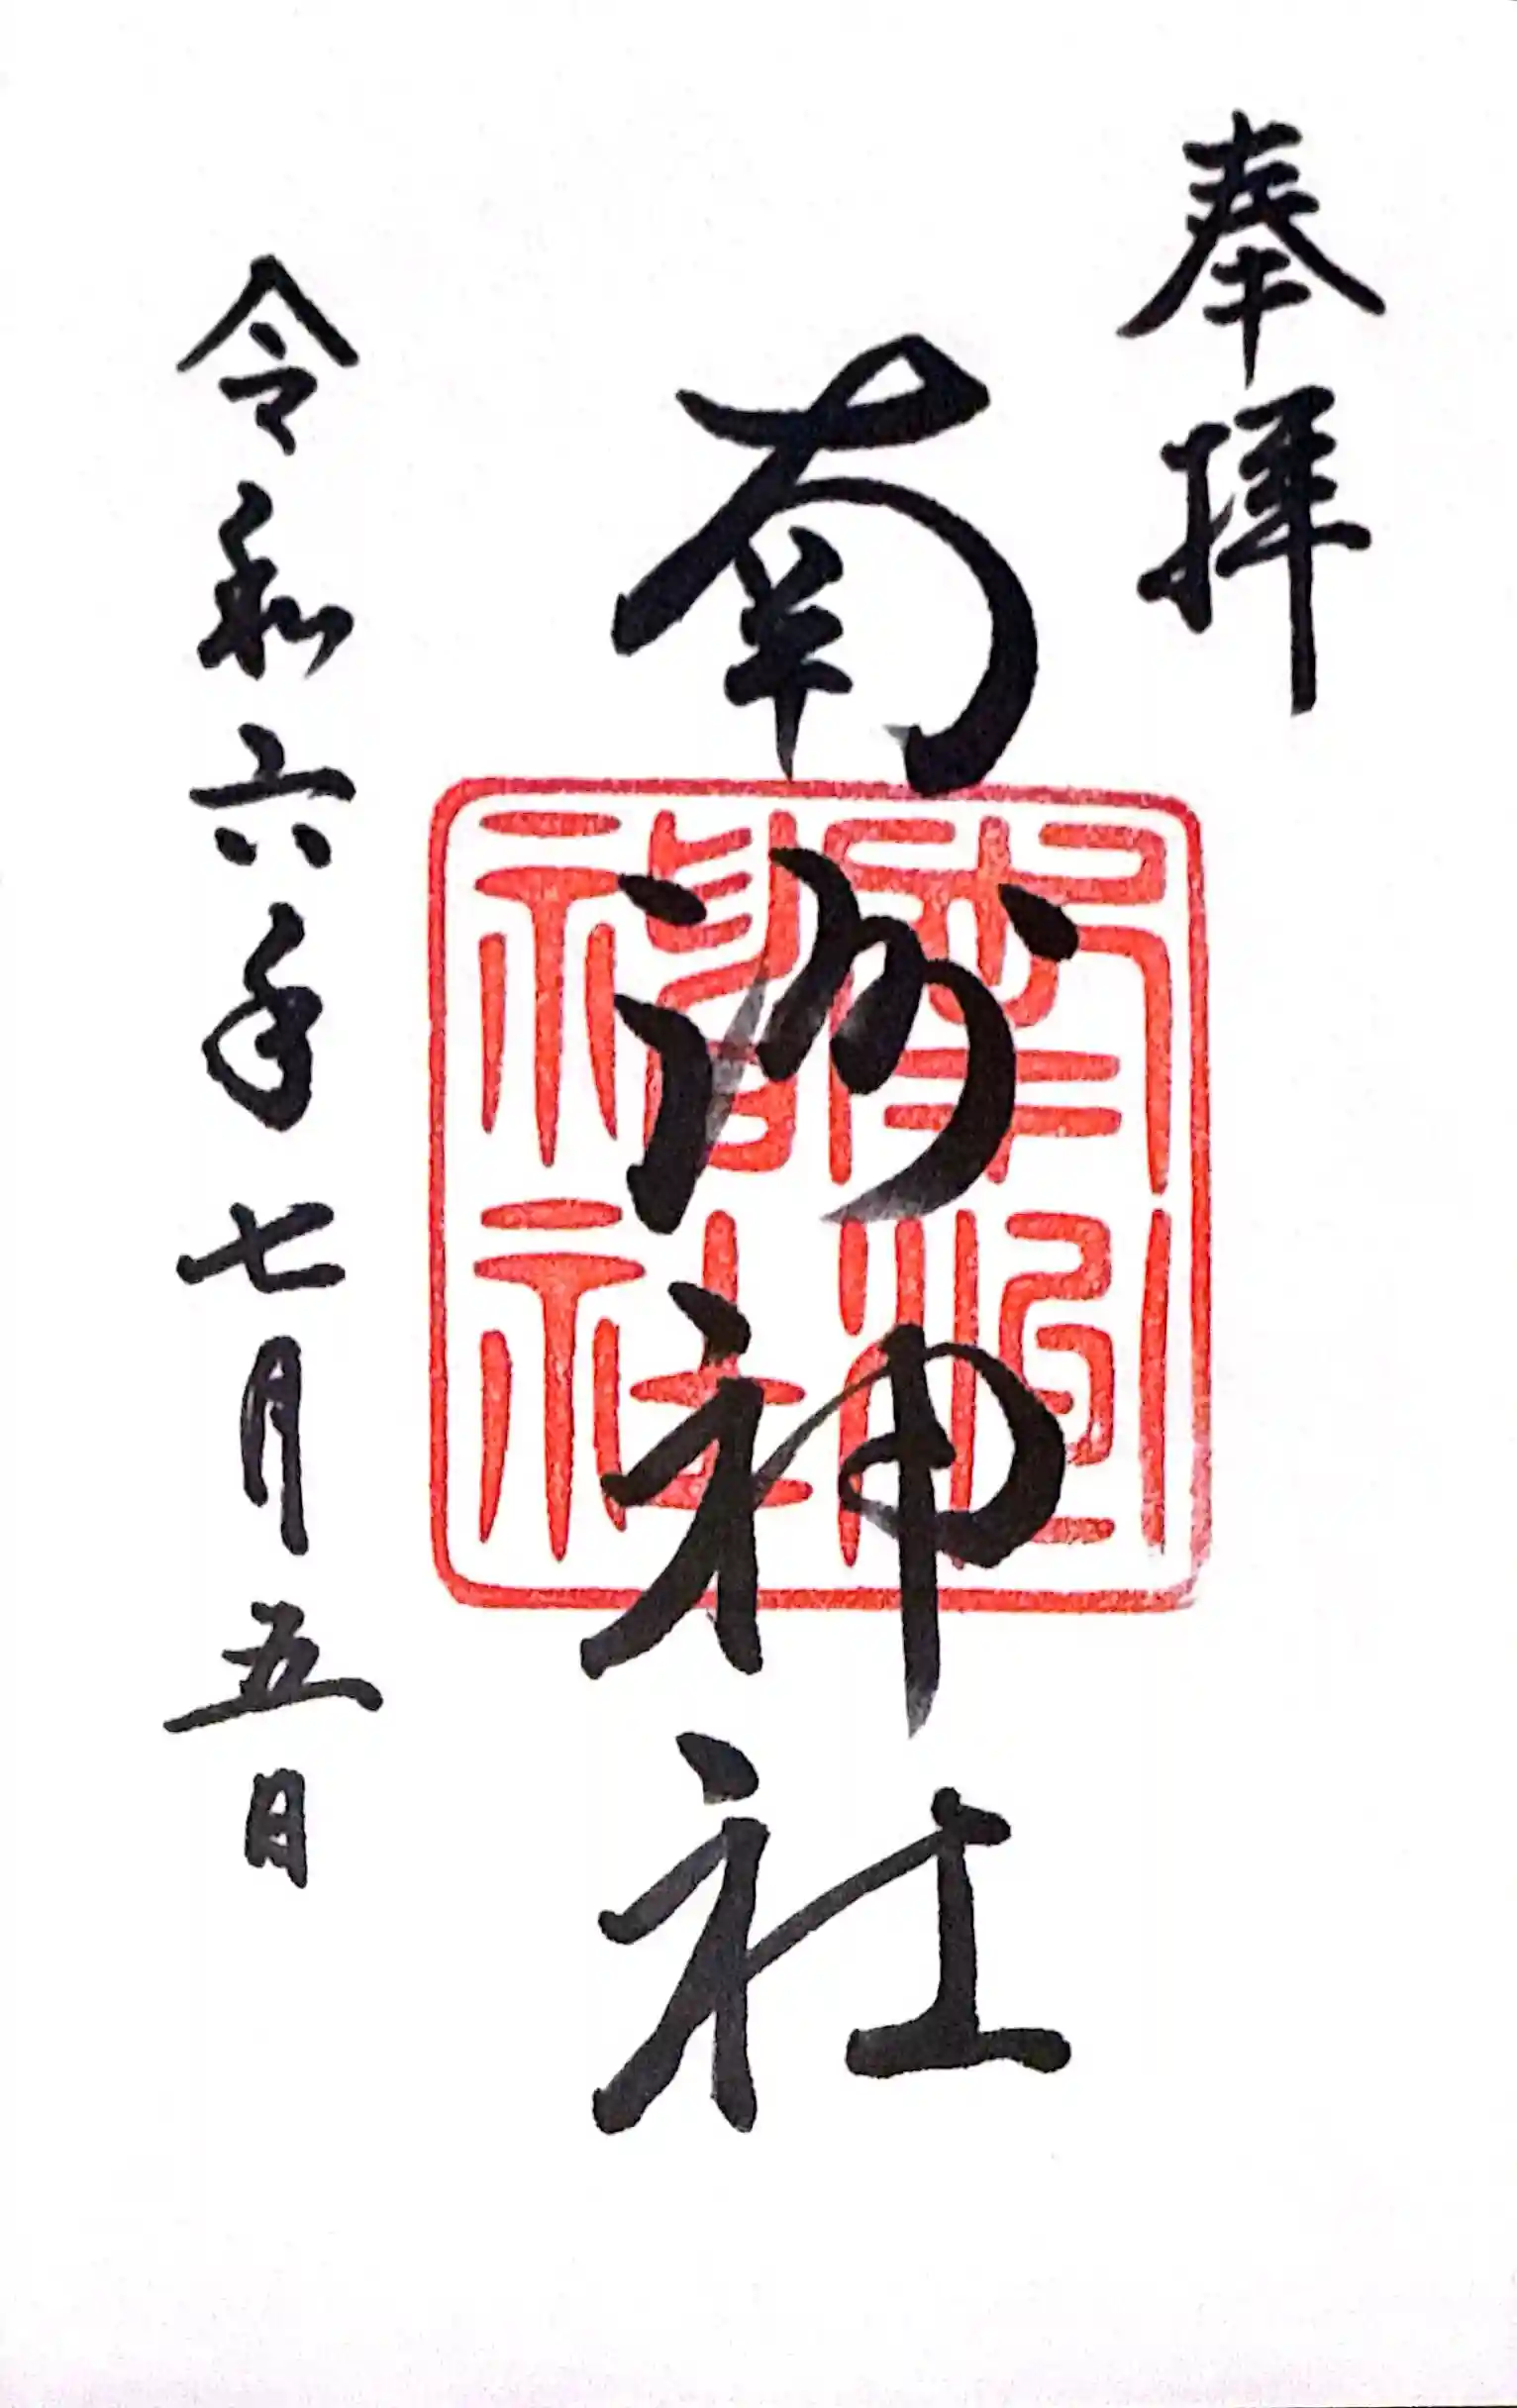 奉拝
南洲神社
南洲神社
令和六年七月五日